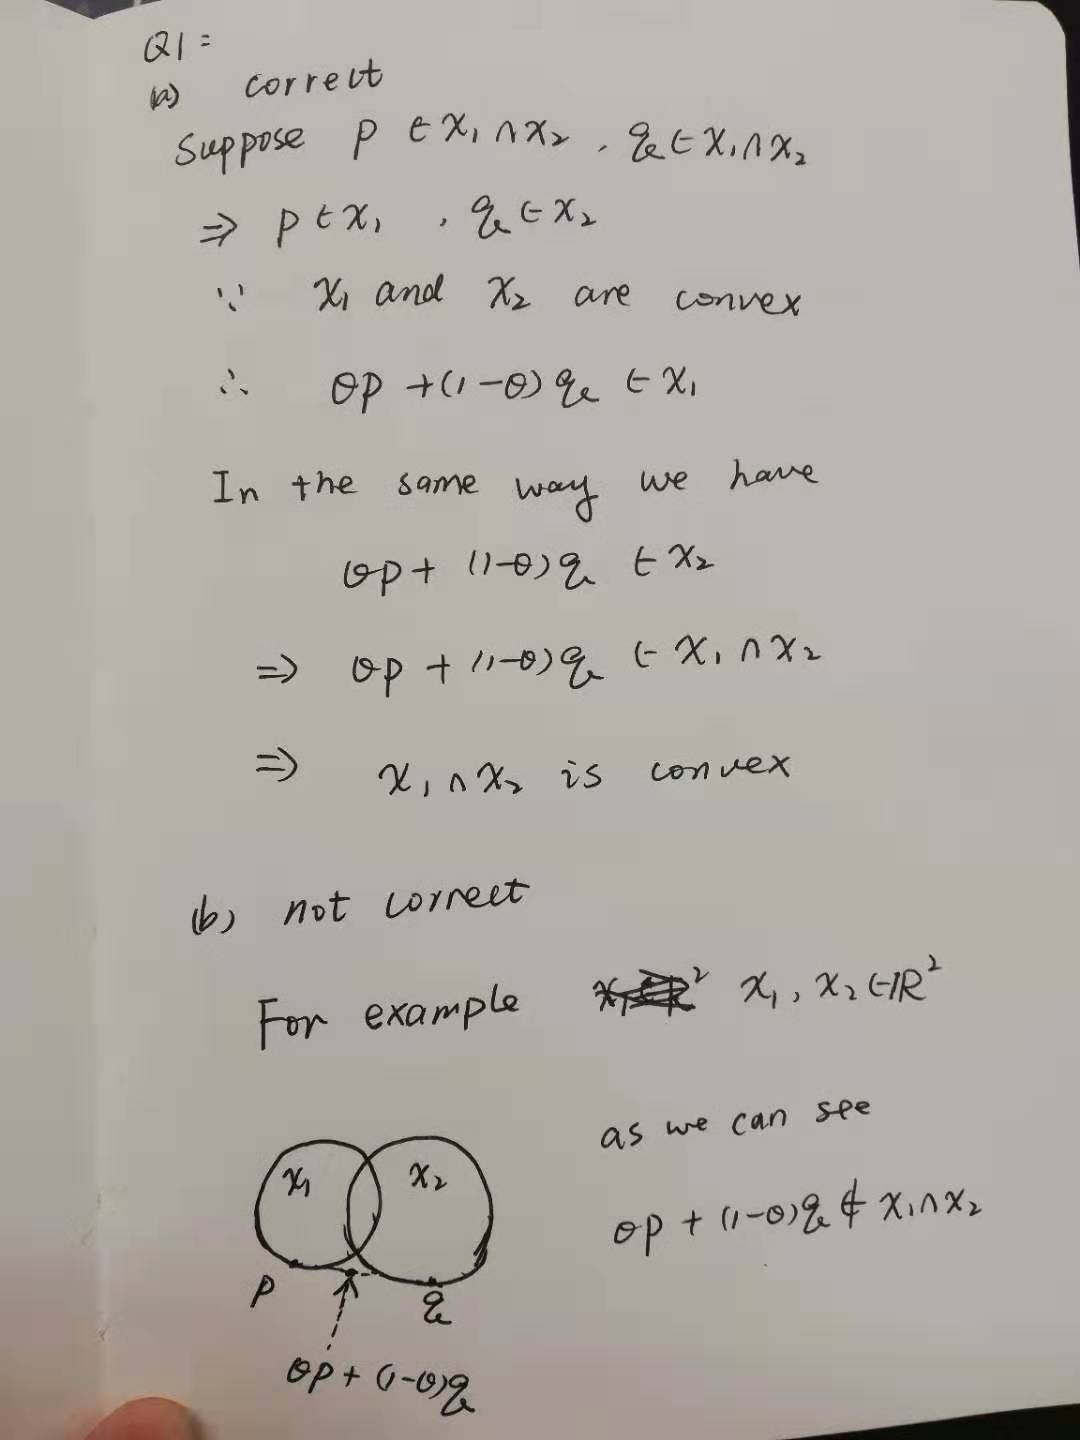 Q1:
(a) correct
Suppose p ∈ X₁ ∩ X₂ , q ∈ X₁ ∩ X₂
⇒ p ∈ X₁ , q ∈ X₂
∵ X₁ and X₂ are convex
∴ θp + (1-θ)q ∈ X₁
In the same way we have
θp + (1-θ)q ∈ X₂
⇒ θp + (1-θ)q ∈ X₁ ∩ X₂
⇒ X₁ ∩ X₂ is convex
(b) not correct
For example X₁, X₂ ∈ ℝ²
as we can see
θp + (1-θ)q ∉ X₁ ∩ X₂
X₁ X₂
p q
θp + (1-θ)q